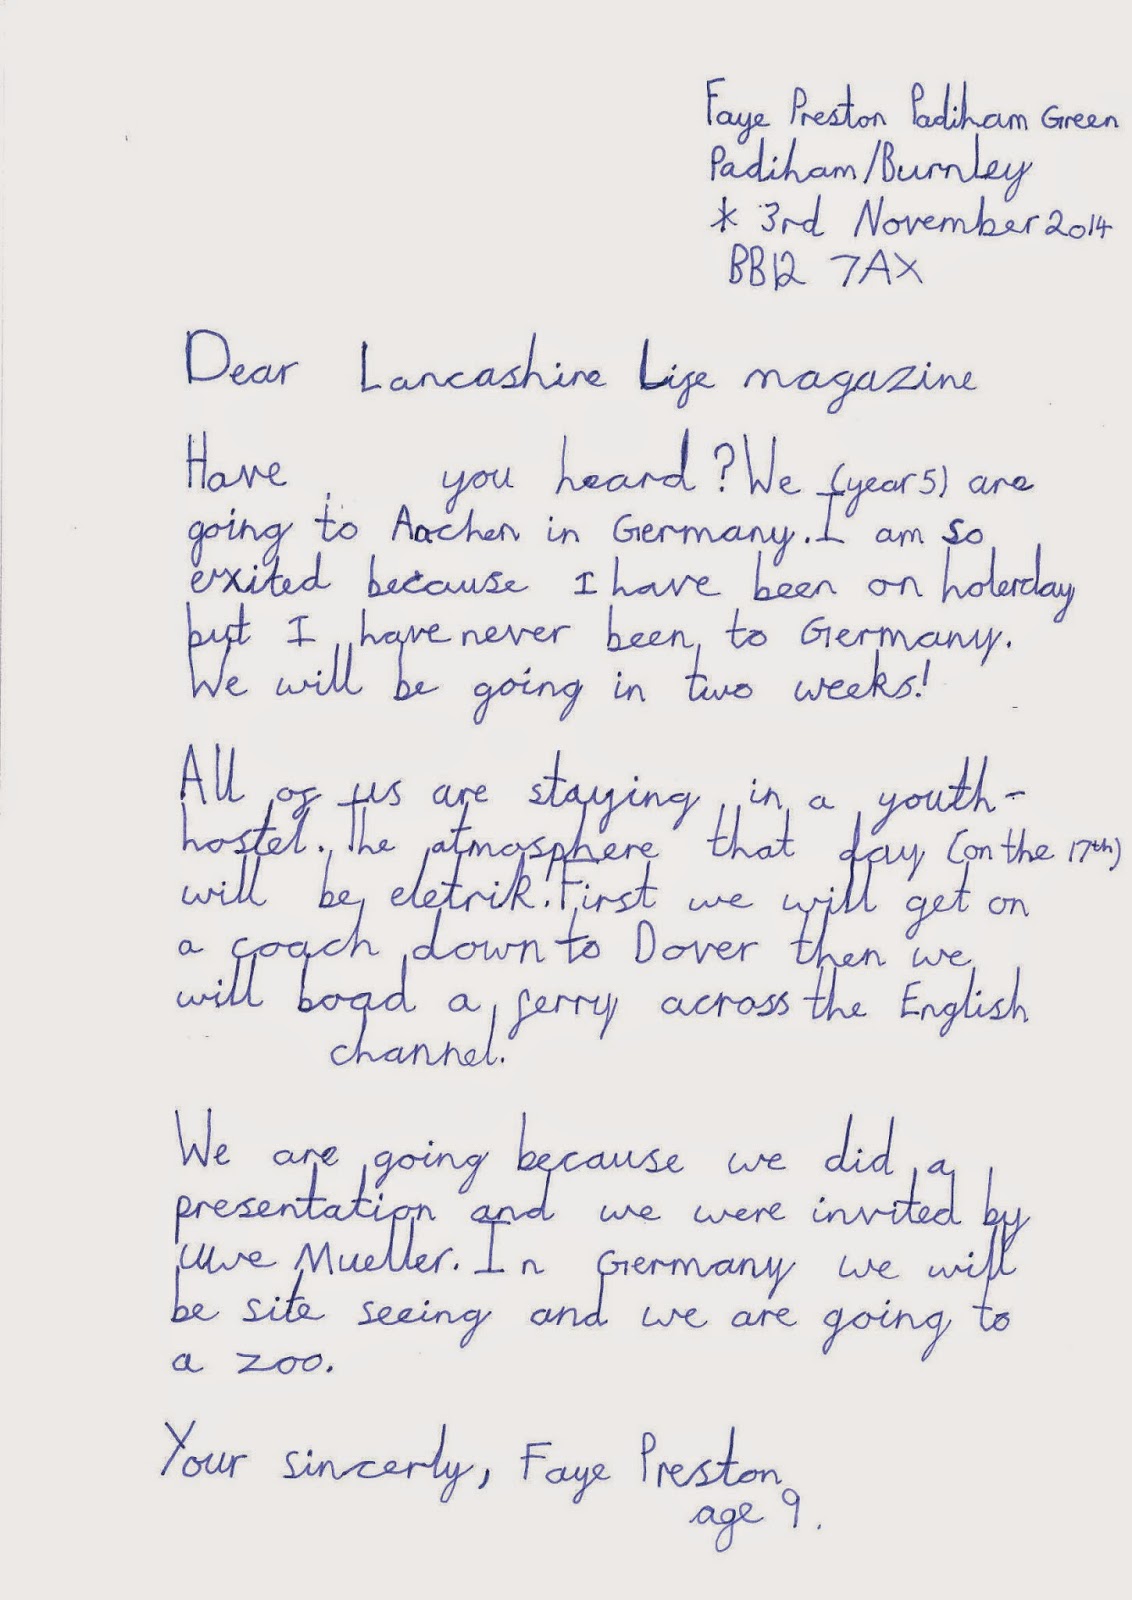 Faye Preston Padiham Green
Padiham/Burnley
* 3rd November 2014
BB12 7AX
Dear Lancashire Life magazine
Have you heard? We (year 5) are
going to Aachen in Germany. I am so
exited because I have been on holerday
but I have never been to Germany.
We will be going in two weeks!
All of us are staying in a youth-
hostel. The atmosphere that day (on the 17th)
will be eletrik. First we will get on
a coach down to Dover then we
will boad a ferry across the English
channel.
We are going because we did a
presentation and we were invited by
Uwe Mueller. In Germany we will
be site seeing and we are going to
a zoo.
Your sincerly, Faye Preston
age 9.